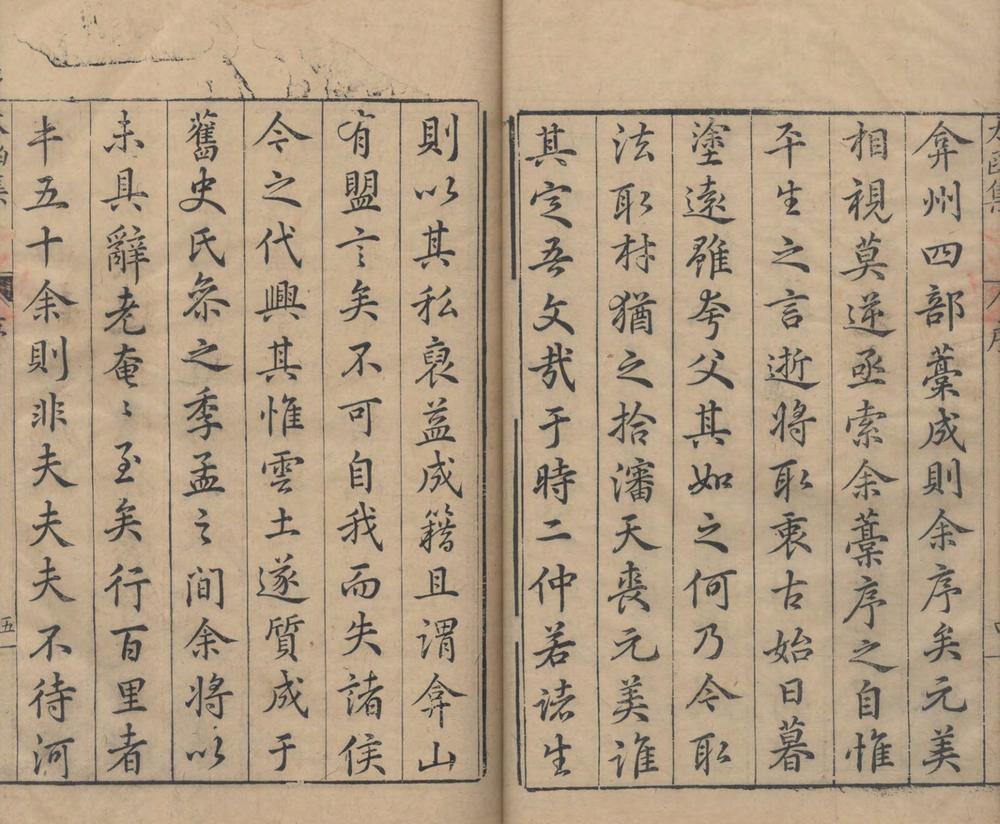 弇州四部藁成則余序矣元美
相視莫逆亟索余藁序之自惟
平生之言逝將取衷古始日暮
塗遠雖夸父其如之何乃今取
法取材猶之拾瀋天喪元美誰
其定吾文哉于時二仲若諸生
則以其私裒益成籍且謂弇山
有盟言矣不可自我而失諸侯
今之代興其惟雲土遂質成于
舊史氏叅之季孟之間余將以
未具辭老奄〻至矣行百里者
半五十余則非夫夫夫不待河
五